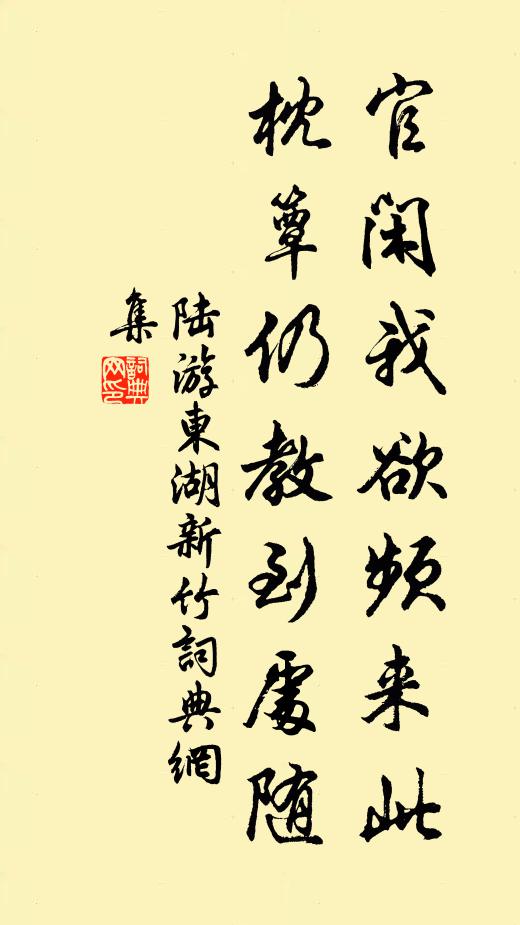 官閑我欲頻来此
枕簟仍教到處随
陆游東湖新竹詞典網
集
詞典网印